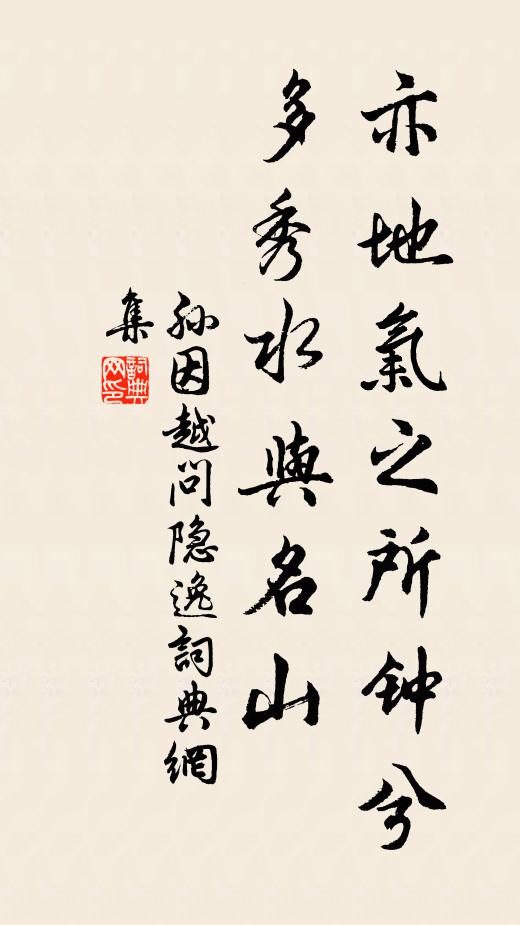 亦地氣之所钟兮
多秀水與名山
孙因越问隐逸詞典網
集
詞典
网印